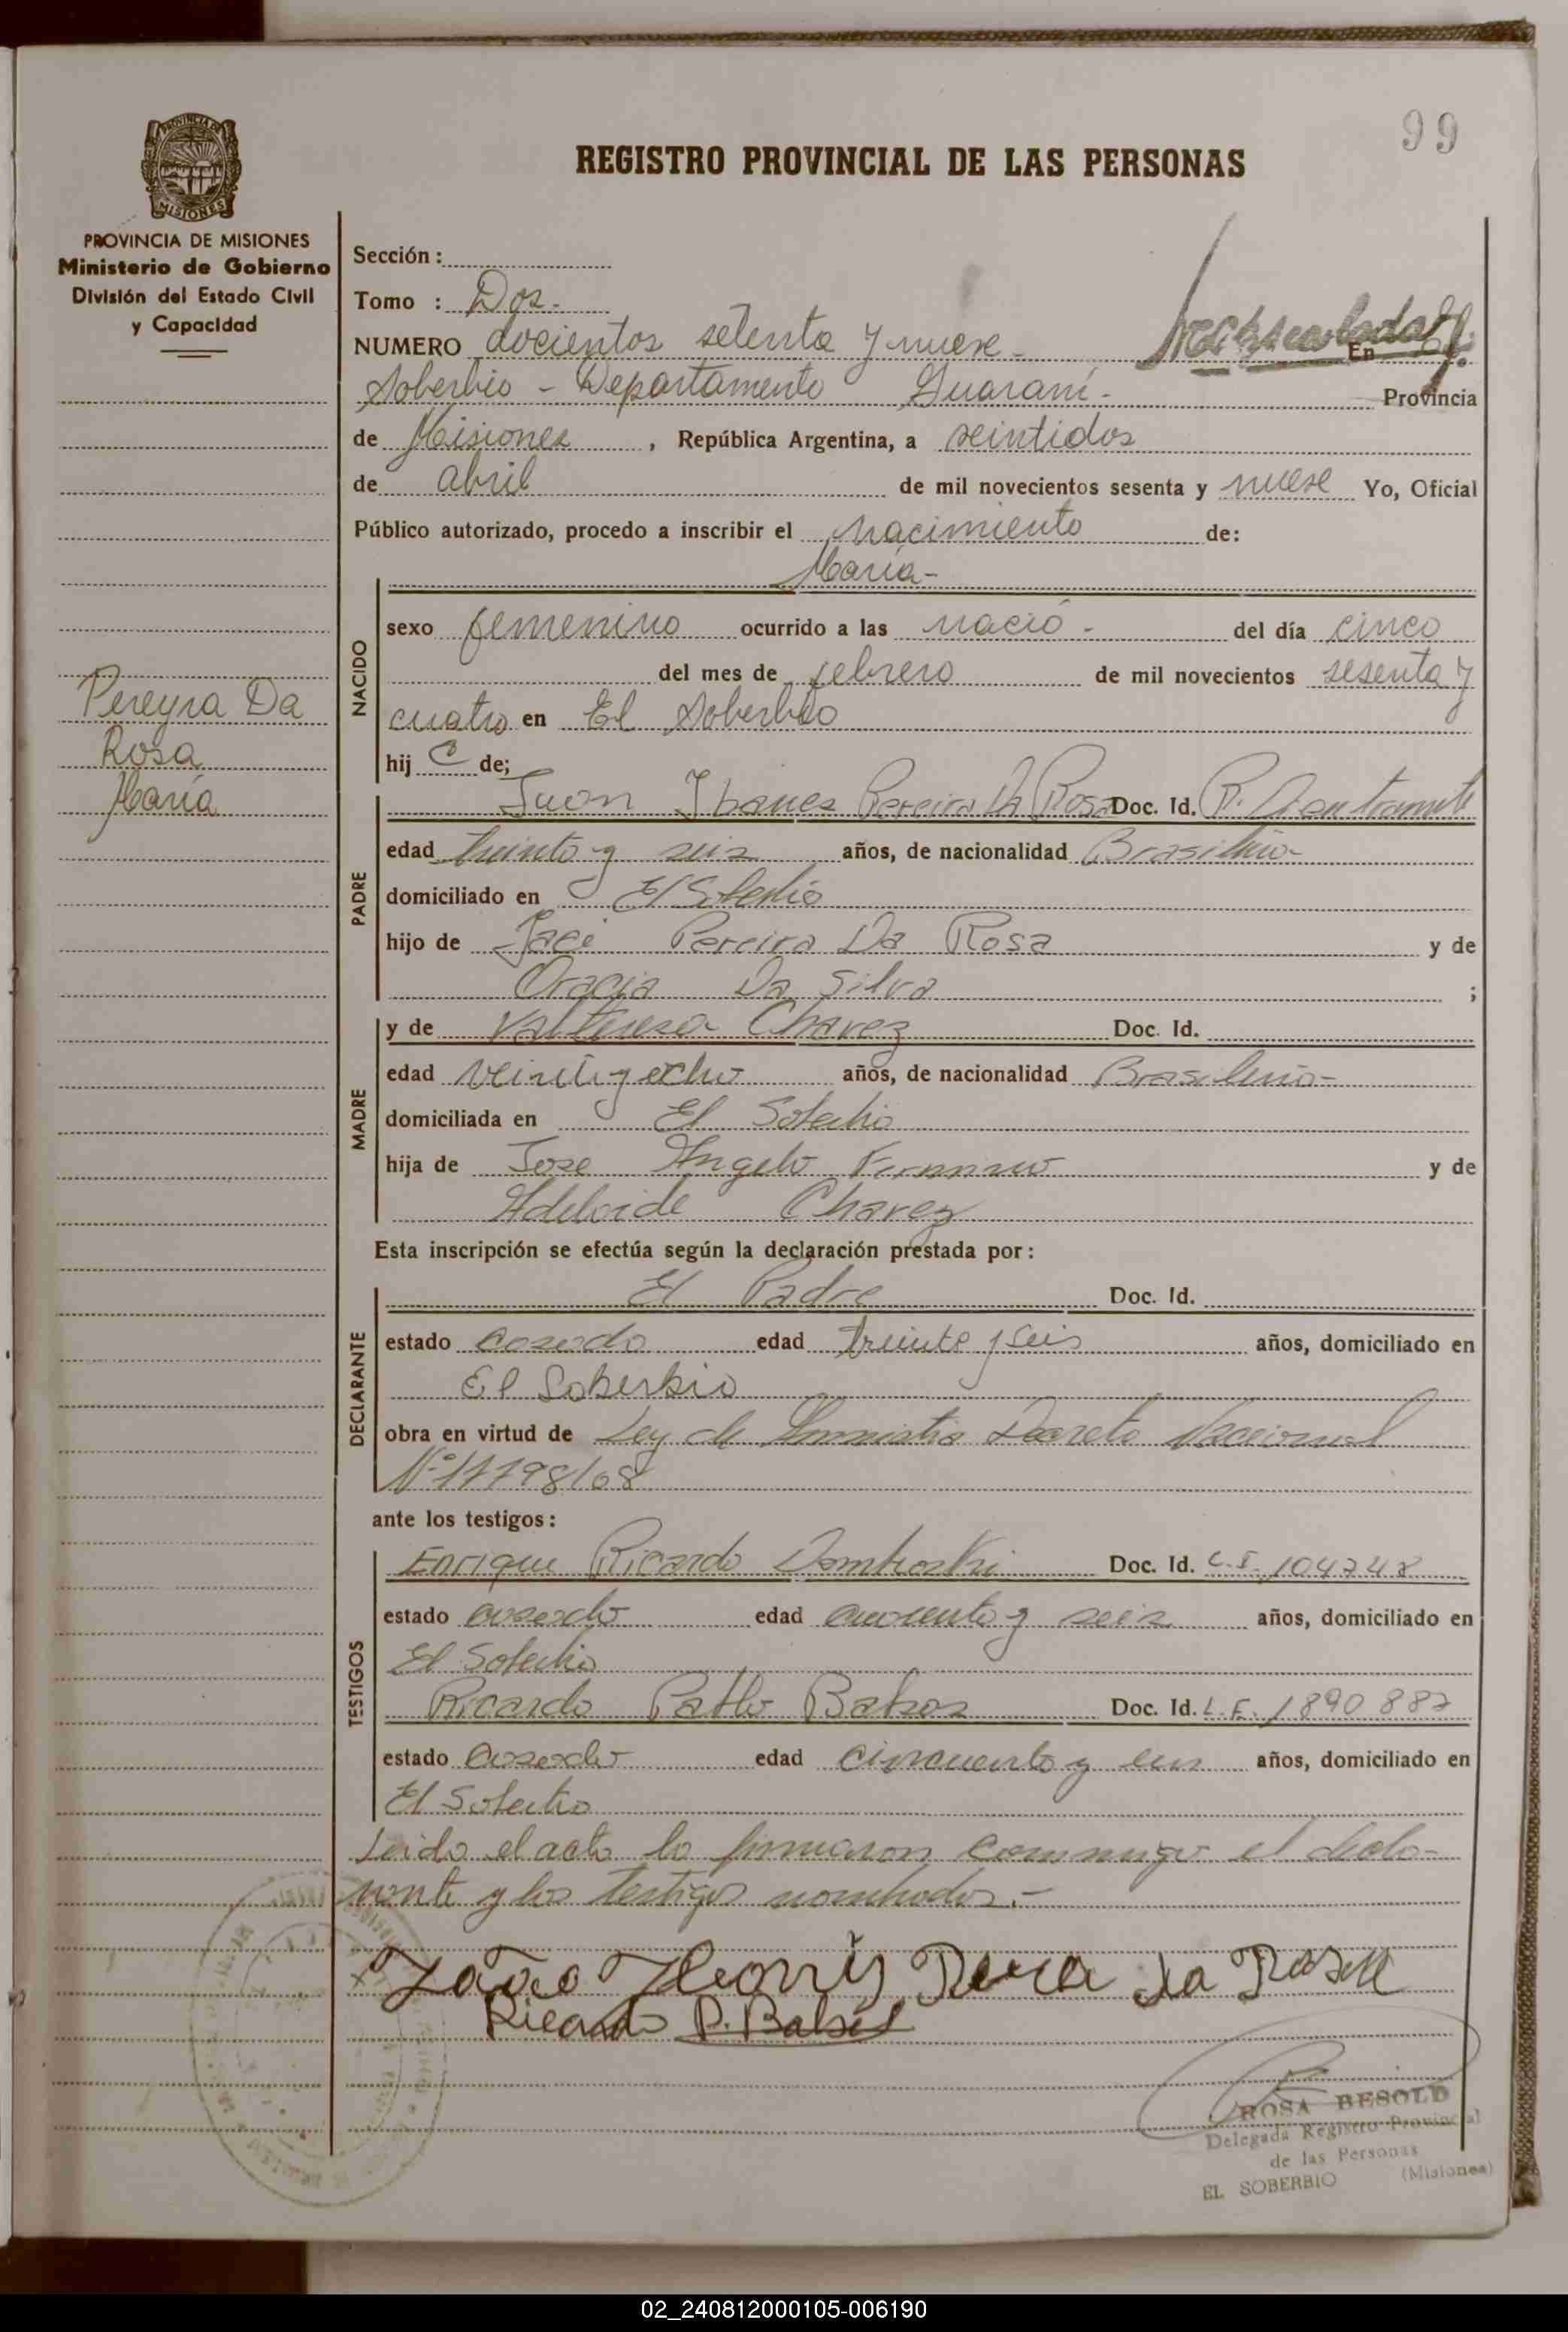 99
REGISTRO PROVINCIAL DE LAS PERSONAS
PROVINCIA DE MISIONES
Ministerio de Gobierno
División del Estado Civil
y Capacidad
Pereyra Da
Rosa
María
Sección :
Tomo : Dos.-
NUMERO docientos setenta y nueve - En
Soberbio - Departamento Guaraní - Provincia
de Misiones , República Argentina, a veintidos
de abril de mil novecientos sesenta y nueve Yo, Oficial
Público autorizado, procedo a inscribir el nacimiento de:
María-
NACIDO
sexo femenino ocurrido a las nació - del día cinco
del mes de febrero de mil novecientos sesenta y
cuatro en El Soberbio
hij de;
PADRE
Juan Pereira Da Rosa Doc. Id.
edad treinta y seis años, de nacionalidad Brasileño-
domiciliado en El Soberbio
hijo de Jaci Pereira Da Rosa y de
Da Silva ;
MADRE
y de Chavez Doc. Id.
edad veinti y ocho años, de nacionalidad Brasileña-
domiciliada en El Soberbio
hija de Jose Angelo y de
Adelaide Chavez
Esta inscripción se efectúa según la declaración prestada por :
DECLARANTE
El Padre Doc. Id.
estado casado edad treinta y seis años, domiciliado en
El Soberbio
obra en virtud de Ley de Amnistia Decreto Nacional
Nº 17798/68
ante los testigos :
TESTIGOS
Enrique Ricardo Dombroski Doc. Id. C.I. 104248
estado casado edad cuarenta y seis años, domiciliado en
El Soberbio
Ricardo Pablo Doc. Id. L.E. 1890887
estado casado edad cincuenta y un años, domiciliado en
El Soberbio
Leido el acta la firmaron conmigo el decla-
rante y los testigos nombrados.-
da Rosa
Ricardo P.
ROSA BESOLD
Delegada Registro Provincial
de las Personas
EL SOBERBIO (Misiones)
02_240812000105-006190